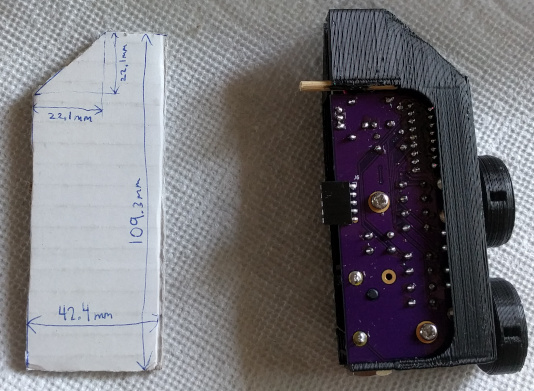 22.1mm
22.1mm
109.3mm
42.4mm